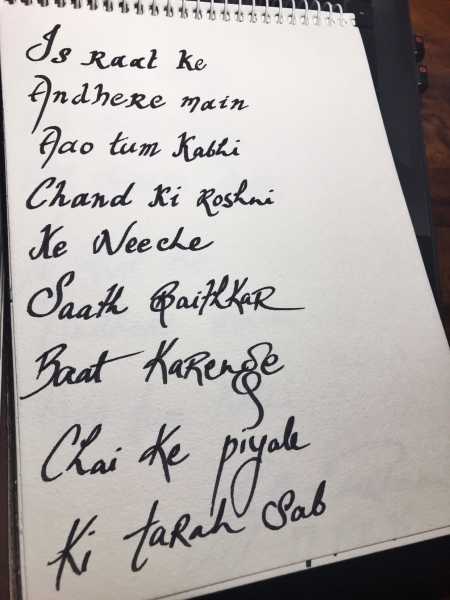 Is Raat Ke
Andhere main
Aao tum Kabhi
Chand Ki Roshni
Ke Neeche
Saath BaithKaR
Baat KaRenge
Chai Ke piyale
Ki taRah Sab